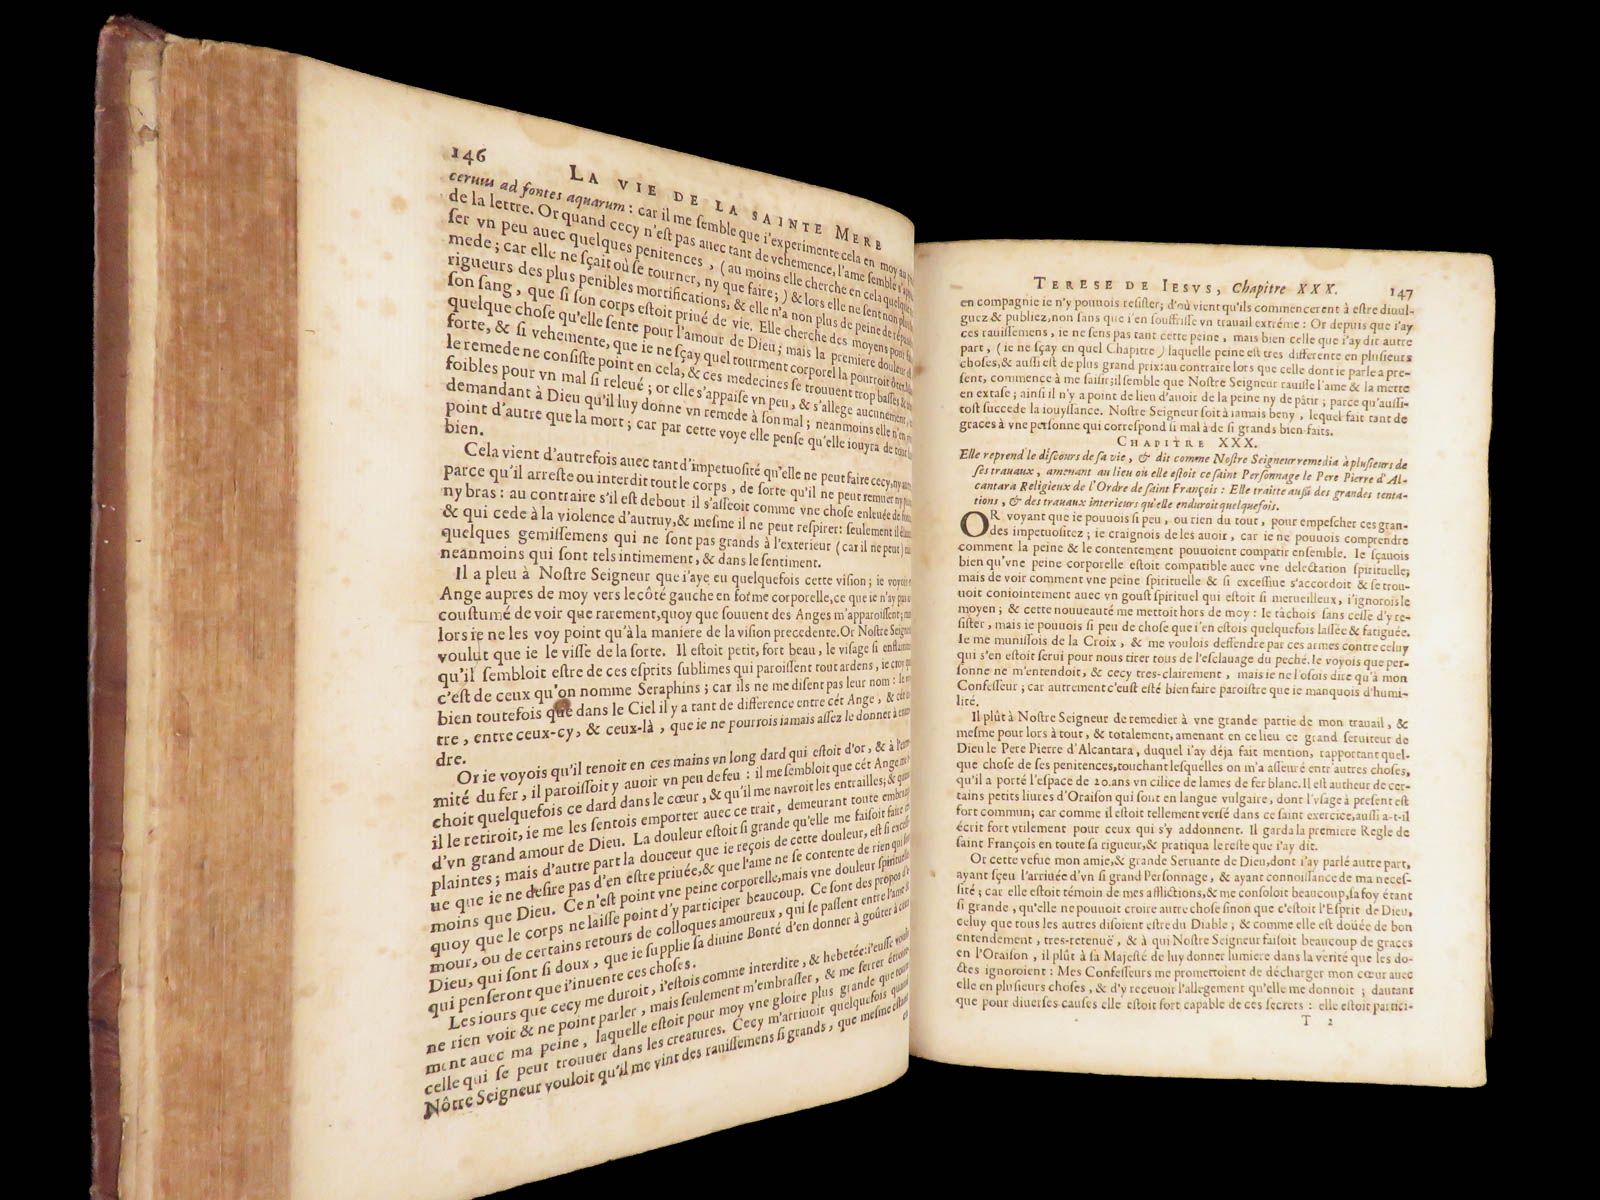 146
LA VIE DE LA SAINTE MERE
ceruus ad fontes aquarum : car il me ſemble que i'experimente cela en moy au
de la lettre. Or quand cecy n'eſt pas auec tant de vehemence, l'ame ſemble s'ap
ſer vn peu auec quelques penitences, (au moins elle cherche en cela quelque
mede ; car elle ne ſçait où ſe tourner, ny que faire; ) & lors elle ne ſent non plus
rigueurs des plus penibles mortifications, & elle n'a non plus de peine de répan
ſon ſang, que ſi ſon corps eſtoit priué de vie. Elle cherche des moyens pour
quelque choſe qu'elle ſente pour l'amour de Dieu ; mais la premiere douleur
forte, & ſi vehemente, que ie ne ſçay quel tourment corporel la pourroit ôter.
le remede ne conſiſte point en cela, & ces medecines ſe trouuent trop baſſes &
foibles pour vn mal ſi releué ; or elle s'appaiſe vn peu, & s'allege aucunement,
demandant à Dieu qu'il luy donne vn remede à ſon mal ; neanmoins elle n'en
point d'autre que la mort ; car par cette voye elle penſe qu'elle iouyra de tout
bien.
Cela vient d'autrefois auec tant d'impetuoſité qu'elle ne peut faire cecy, ny autre
parce qu'il arreſte ou interdit tout le corps, de ſorte qu'il ne peut remuer ny
ny bras : au contraire s'il eſt debout il s'aſſeoit comme vne choſe enleuée de
& qui cede à la violence d'autruy, & meſme il ne peut reſpirer: ſeulement il
quelques gemiſſemens qui ne ſont pas grands à l'exterieur (car il ne peut)
neanmoins qui ſont tels intimement, & dans le ſentiment.
Il a pleu à Noſtre Seigneur que i'aye eu quelquefois cette viſion ; ie voyois
Ange aupres de moy vers le côté gauche en forme corporelle, ce que ie n'ay pas
couſtumé de voir que rarement, quoy que ſouuent des Anges m'apparoiſſent;
lors ie ne les voy point qu'à la maniere de la viſion precedente. Or Noſtre Seigne
voulut que ie le viſſe de la ſorte. Il eſtoit petit, fort beau, le viſage ſi enflam
qu'il ſembloit eſtre de ces eſprits ſublimes qui paroiſſent tout ardens, ie croy
c'eſt de ceux qu'on nomme Seraphins ; car ils ne me diſent pas leur nom :
bien toutefois que dans le Ciel il y a tant de difference entre cét Ange, &
tre, entre ceux-cy, & ceux-là, que ie ne pourrois iamais aſſez le donner à
dre.
Or ie voyois qu'il tenoit en ces mains vn long dard qui eſtoit d'or, & à l'extre
mité du fer, il paroiſſoit y auoir vn peu de feu : il me ſembloit que cét Ange
choit quelquefois ce dard dans le cœur, & qu'il me navroit les entrailles;
il le retiroit, ie me les ſentois emporter auec ce trait, demeurant toute
d'vn grand amour de Dieu. La douleur eſtoit ſi grande qu'elle me faiſoit faire
plaintes ; mais d'autre part la douceur que ie reçois de cette douleur, eſt ſi exceſſi
ue que ie ne deſire pas d'en eſtre priuée, & que l'ame ne ſe contente de rien qui
moins que Dieu. Ce n'eſt point vne peine corporelle, mais vne douleur ſpirituelle
quoy que le corps ne laiſſe point d'y participer beaucoup. Ce ſont des propos d'a
mour, ou de certains retours de colloques amoureux, qui ſe paſſent entre l'ame &
Dieu, qui ſont ſi doux, que ie ſupplie ſa diuine Bonté d'en donner à goûter à ceux
qui penſeront que i'inuente ces choſes.
Les iours que cecy me duroit, i'eſtois comme interdite, & hebetée: i'euſſe voulu
ne rien voir & ne point parler, mais ſeulement m'embraſſer, & me ſerrer étroite
ment auec ma peine, laquelle eſtoit pour moy vne gloire plus grande que toute
celle qui ſe peut trouuer dans les creatures. Cecy m'arriuoit quelquefois quand
Nôtre Seigneur vouloit qu'il me vint des rauiſſemens ſi grands, que meſme eſtant
en
TERESE DE IESVS, Chapitre XXX. 147
en compagnie ie n'y pouuois reſiſter; d'où vient qu'ils commencerent à eſtre diuul-
guez & publiez, non ſans que i'en ſouffriſſe vn trauail extréme : Or depuis que i'ay
ces rauiſſemens, ie ne ſens pas tant cette peine, mais bien celle que i'ay dit autre
part, (ie ne ſçay en quel Chapitre) laquelle peine eſt tres differente en pluſieurs
choſes, & auſſi eſt de plus grand prix: au contraire lors que celle dont ie parle a pre-
ſent, commence à me ſaiſir; il ſemble que Noſtre Seigneur rauiſſe l'ame & la mette
en extaſe ; ainſi il n'y a point de lieu d'auoir de la peine ny de pâtir ; parce qu'auſſi-
toſt ſuccede la iouyſſance. Noſtre Seigneur ſoit à iamais beny, lequel fait tant de
graces à vne perſonne qui correſpond ſi mal à de ſi grands bien-faits.
CHAPITRE XXX.
Elle reprend le diſcours de ſa vie, & dit comme Noſtre Seigneur remedia à pluſieurs de
ſes trauaux, amenant au lieu où elle eſtoit ce ſaint Perſonnage le Pere Pierre d'Al-
cantara Religieux de l'Ordre de ſaint François : Elle traitte auſſi des grandes tenta-
tions, & des trauaux interieurs qu'elle enduroit quelquefois.
OR voyant que ie pouuois ſi peu, ou rien du tout, pour empeſcher ces gran-
des impetuoſitez ; ie craignois de les auoir, car ie ne pouuois comprendre
comment la peine & le contentement pouuoient compatir enſemble. Ie ſçauois
bien qu'vne peine corporelle eſtoit compatible auec vne delectation ſpirituelle;
mais de voir comment vne peine ſpirituelle & ſi exceſſiue s'accordoit & ſe trou-
uoit conioinctement auec vn gouſt ſpirituel qui eſtoit ſi merueilleux, i'ignorois le
moyen ; & cette nouueauté me mettoit hors de moy : Ie tâchois ſans ceſſe d'y re-
ſiſter, mais ie pouuois ſi peu de choſe que i'en eſtois quelquefois laſſée & fatiguée.
Ie me muniſſois de la Croix, & me voulois deffendre par ces armes contre celuy
qui s'en eſtoit ſerui pour nous tirer tous de l'eſclauage du peché. Ie voyois que per-
ſonne ne m'entendoit, & cecy tres-clairement, mais ie ne l'oſois dire qu'à mon
Confeſſeur ; car autrement c'euſt eſté bien faire paroiſtre que ie manquois d'humi-
lité.
Il plût à Noſtre Seigneur de remedier à vne grande partie de mon trauail, &
meſme pour lors à tout, & totalement, amenant en ce lieu ce grand ſeruiteur de
Dieu le Pere Pierre d'Alcantara, duquel i'ay déja fait mention, rapportant quel-
que choſe de ſes penitences, touchant leſquelles on m'a aſſeuré entr autres choſes,
qu'il a porté l'eſpace de 20. ans vn cilice de lames de fer blanc. Il eſt autheur de cer-
tains petits liures d'Oraiſon qui ſont en langue vulgaire, dont l'vſage à preſent eſt
fort commun; car comme il eſtoit tellement verſé dans ce ſaint exercice, auſſi a-t-il
écrit fort vtilement pour ceux qui s'y addonnent. Il garda la premiere Regle de
ſaint François en toute ſa rigueur, & pratiqua le reſte que i'ay dit.
Or cette vefue mon amie, & grande Seruante de Dieu, dont i'ay parlé autre part,
ayant ſçeu l'arriuée d'vn ſi grand Perſonnage, & ayant connoiſſance de ma neceſ-
ſité ; car elle eſtoit témoin de mes afflictions, & me conſoloit beaucoup, ſa foy étant
ſi grande, qu'elle ne pouuoit croire autre choſe ſinon que c'eſtoit l'Eſprit de Dieu,
celuy que tous les autres diſoient eſtre du Diable ; & comme elle eſt doüée de bon
entendement, tres-retenuë, & à qui Noſtre Seigneur faiſoit beaucoup de graces
en l'Oraiſon, il plût à ſa Majeſté de luy donner lumiere dans la verité que les do-
ctes ignoroient : Mes Confeſſeurs me promettoient de décharger mon cœur auec
elle en pluſieurs choſes, & d'y receuoir l'allegement qu'elle me donnoit ; dautant
que pour diuerſes cauſes elle eſtoit fort capable de ces ſecrets : elle eſtoit partici-
T 2